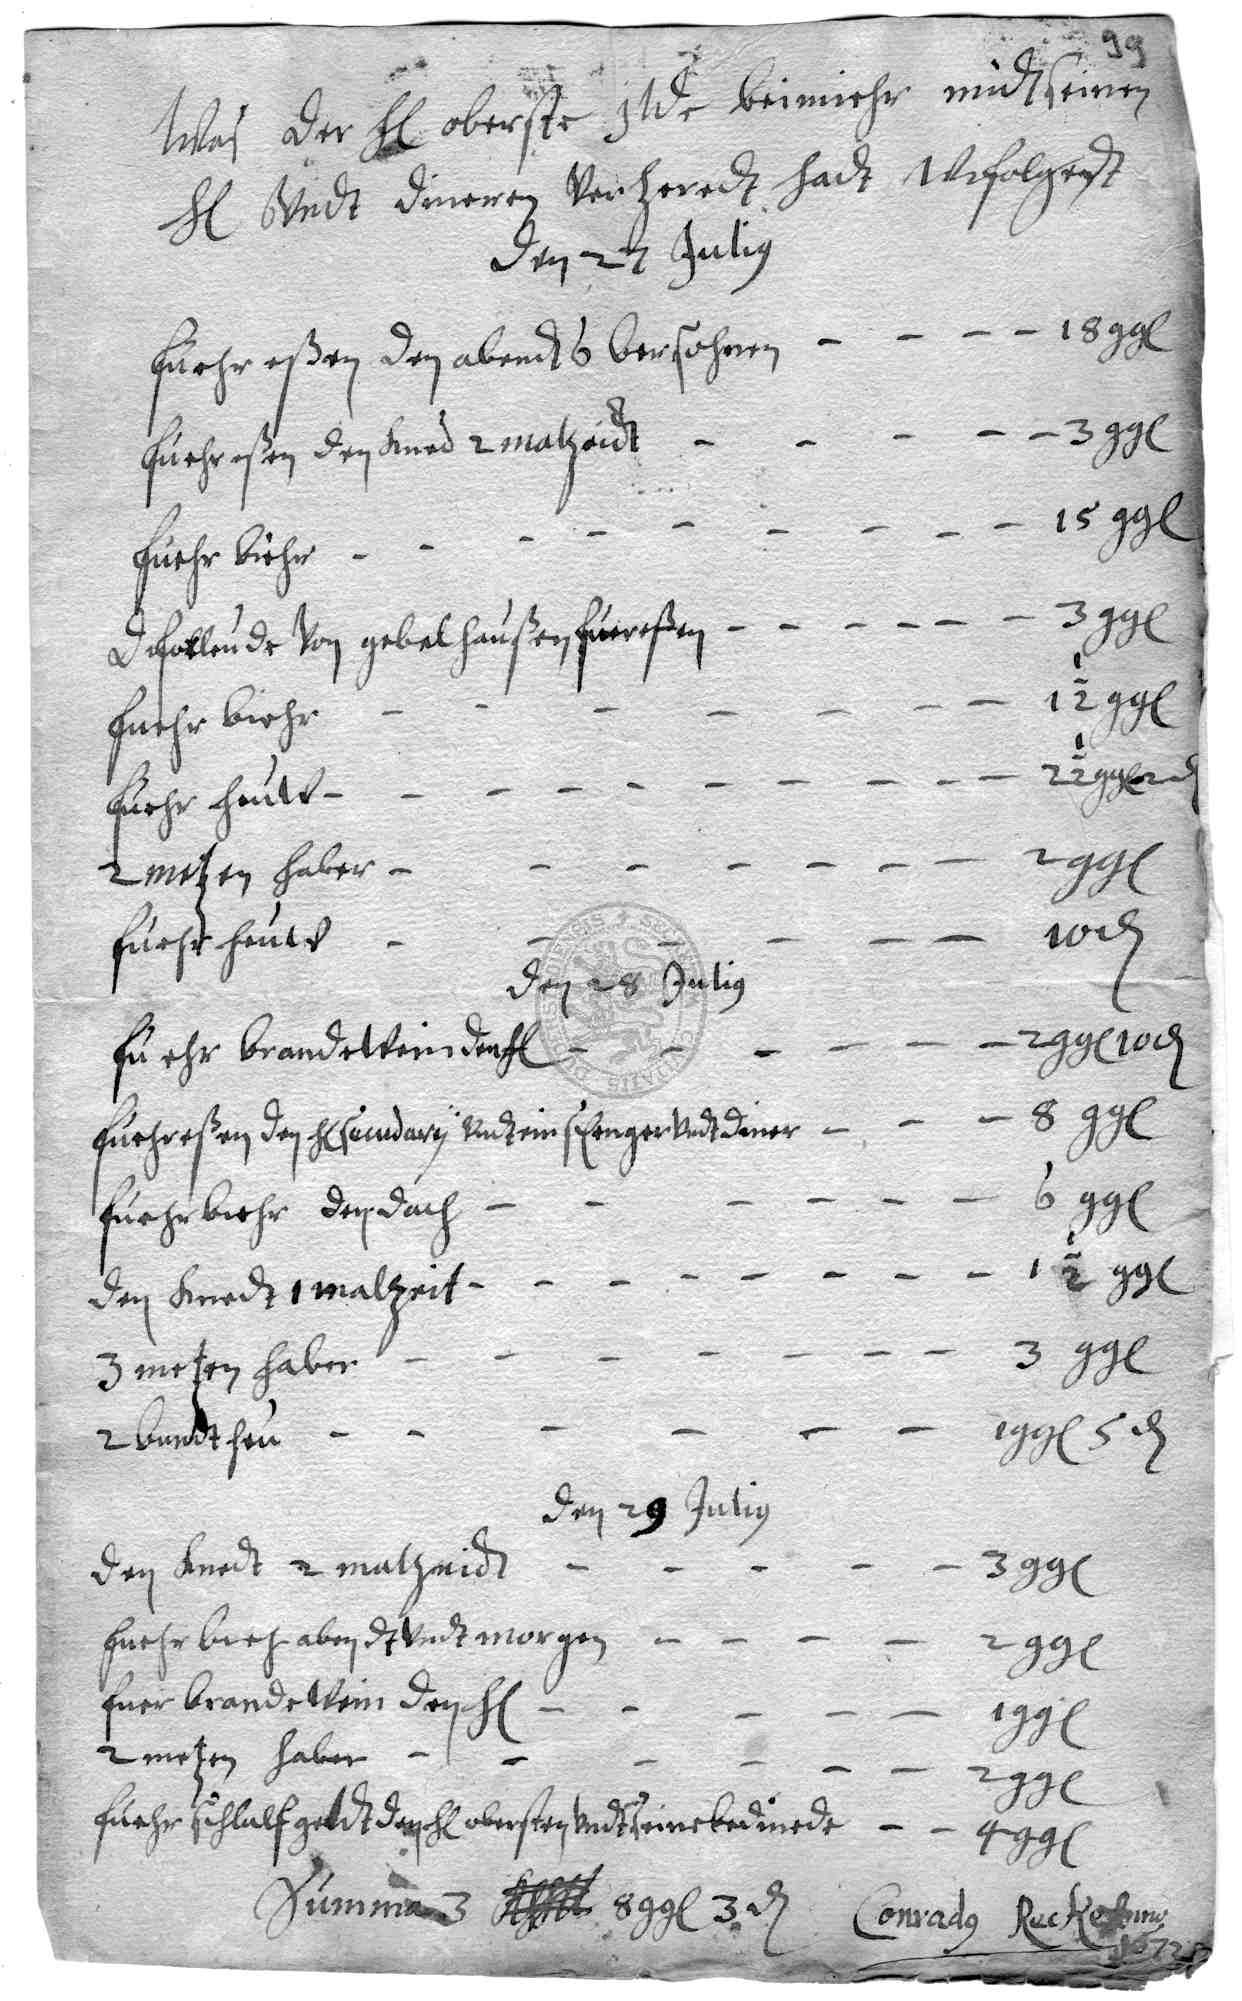 99
Was der hl oberste Ilde beimiehr midt seinen
hl Vndt dineren Verzeredt hadt Wifolgedt
den 27 Julig
fuehr eßen den abendt 6 bersohnen — — — — 18 ggl
fuehr eßen den kned 2 malzeidt — — — — — 3 ggl
fuehr biehr — — — — — — — — 15 ggl
Von gebelhaußen fuer eßen — — — — — — 3 ggl
fuehr biehr — — — — — — — 1 1/2 ggl
fuehr heuW — — — — — — — — 2 1/2 ggl 2 d
2 metzen haber — — — — — — — 2 ggl
fuehr heuW — — — — — — 10 d
den 28 Julig
fuehr brandeWein den hl — — — — — — 2 ggl 10 d
fuehr eßen den hl secundarij Vndt ein Vndt diner — — — 8 ggl
fuehr biehr den dach — — — — — — 6 ggl
den knedt 1 malzeit — — — — — — — — 1 1/2 ggl
3 metzen haber — — — — — — — — 3 ggl
2 bundt heu — — — — — — 1 ggl 5 d
den 29 Julig
den knedt 2 malzeidt — — — — — 3 ggl
fuehr bieh abendt Vndt morgen — — — — 2 ggl
fuer brandeWein den hl — — — — — 1 ggl
2 metzen haber — — — — — — 2 ggl
fuehr schlafgeldt den hl obersten Vndt seine bedinede — — 4 ggl
Summa 3 8 ggl 3 d Conradg
1672